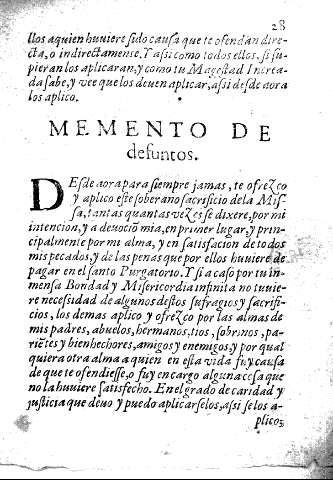 28
llos a quien huuiere sido causa que te ofendan dire-
cta, o indirectamente. Y assi como todos ellos, si su-
pieran los aplicaran, y como tu Magestad Increa-
da sabe, y vee que los deuen aplicar, assi desde aora
los aplico.
MEMENTO DE
defuntos.
DEsde aora para siempre jamas, te ofrezco
y aplico este soberano sacrificio de la Mis-
sa, tantas quantas vezes se dixere, por mi
intencion, y a deuociō mia, en primer lugar, y prin-
cipalmente por mi alma, y en satisfacion de todos
mis pecados, y de las penas que por ellos huuiere de
pagar en el santo Purgatorio. Y si a caso por tu in-
mensa Bondad y Misericordia infinita no tuuie
re necesidad de algunos destos sufragios y sacrifi-
cios, los demas aplico y ofrezco por las almas de
mis padres, abuelos, hermanos, tios, sobrinos, pa-
riētes y bienhechores, amigos y enemigos, y por qual
quiera otra alma a quien en esta vida fuy causa
de que te ofendiesse, o fuy en cargo alguna cosa que
no la huuiere satisfecho. En el grado de caridad y
justicia que deuo y puedo aplicarselos, assi se los a-
plico;